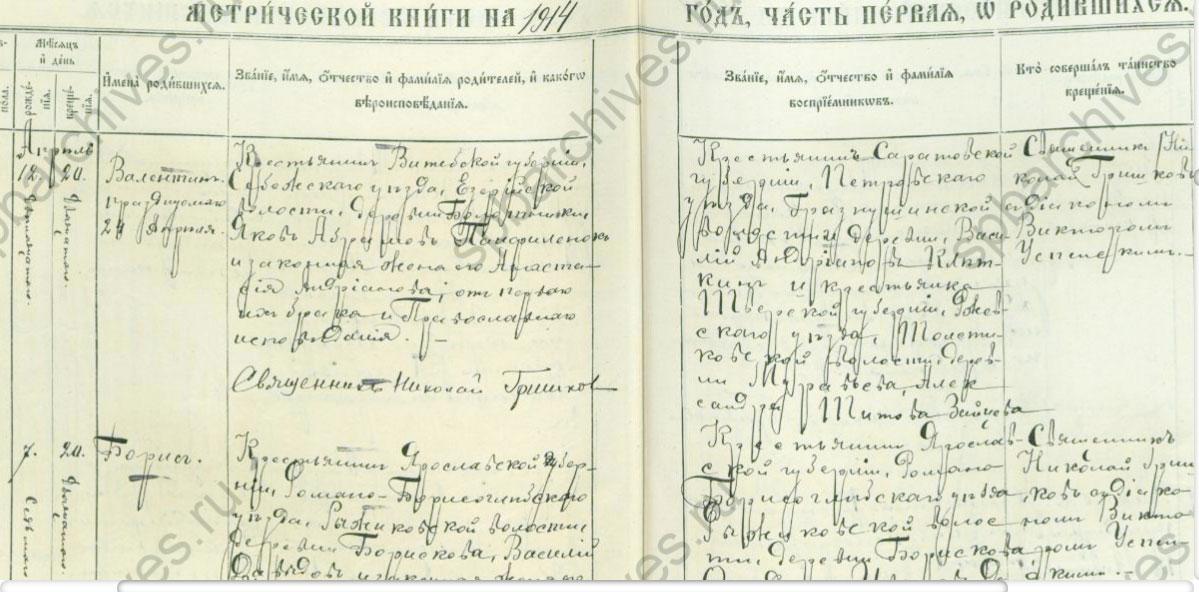 МЕТРИ́ЧЕСКОЙ КНИ́ГИ НА 1914
ГОДЪ, ЧА́СТЬ ПЕ́РВАЯ, Ѡ РОДИ́ВШИХСѦ.
МѢ́СѦЦЪ
И҆ ДЕНЬ
РОЖДЕ́НІѦ.
КРЕЩЕ́НІѦ.
И҆МЕНА̀ РОДИ́ВШИХСѦ.
ЗВА́НІЕ, И҆́МѦ, Ѻ҆́ТЧЕСТВО И҆ ФАМИ́ЛІѦ РОДИ́ТЕЛЕЙ, И҆ КАКО́ГѠ
ВѢ́РОИСПОВѢ́ДАНІѦ.
ЗВА́НІЕ, И҆́МѦ, Ѻ҆́ТЧЕСТВО И҆ ФАМИ́ЛІѦ
ВОСПРІЕ́МНИКѠВЪ.
КТО̀ СОВЕРША́ЛЪ ТА́ИНСТВО
КРЕЩЕ́НІѦ.
Апрѣль
12. 20.
двѣнадцатаго.
двадцатаго.
Валентинъ.
празднуемаго
24 Апрѣля.
Крестьянинъ Витебской губерніи,
Себежскаго уѣзда, Езерійской
волости, деревни
Яковъ Абрамовъ Панфиленокъ
и законная жена его Анаста-
сія Андріанова; отъ перваго
ихъ брака и Православнаго
исповѣданія.
Священникъ Николай Гришковъ
Крестьянинъ Саратовской
губерніи, Петровскаго
уѣзда,
волости и деревни, Васи-
лій Андріановъ
кинъ и крестьянка
Тверской губерніи, Ржев-
скаго уѣзда, Молоти-
ковской волости, дерев-
ни Муравьева, Алек
сандра Титова Зайцева
Священникъ Ни-
колай Гришковъ
съ діакономъ
Викторомъ
Успенскимъ.
7. 20.
Седьмаго
двадцатаго.
Борисъ.
Крестьянинъ Ярославской губер-
ніи, Романо-Борисоглѣбскаго
уѣзда, Рыжиковской волости,
деревни Борискова, Василій
Давыдовъ и законная жена его
Крестьянинъ Ярослав-
ской губерніи, Романо
Борисоглѣбскаго уѣзда
Рыжиковской волос
ти, деревни Борискова
Священникъ
Николай Гриш-
ковъ съ діако-
номъ Викто
ромъ Успен-
скимъ.
spbarchives.ru
spbarchives.ru
spbarchives.ru